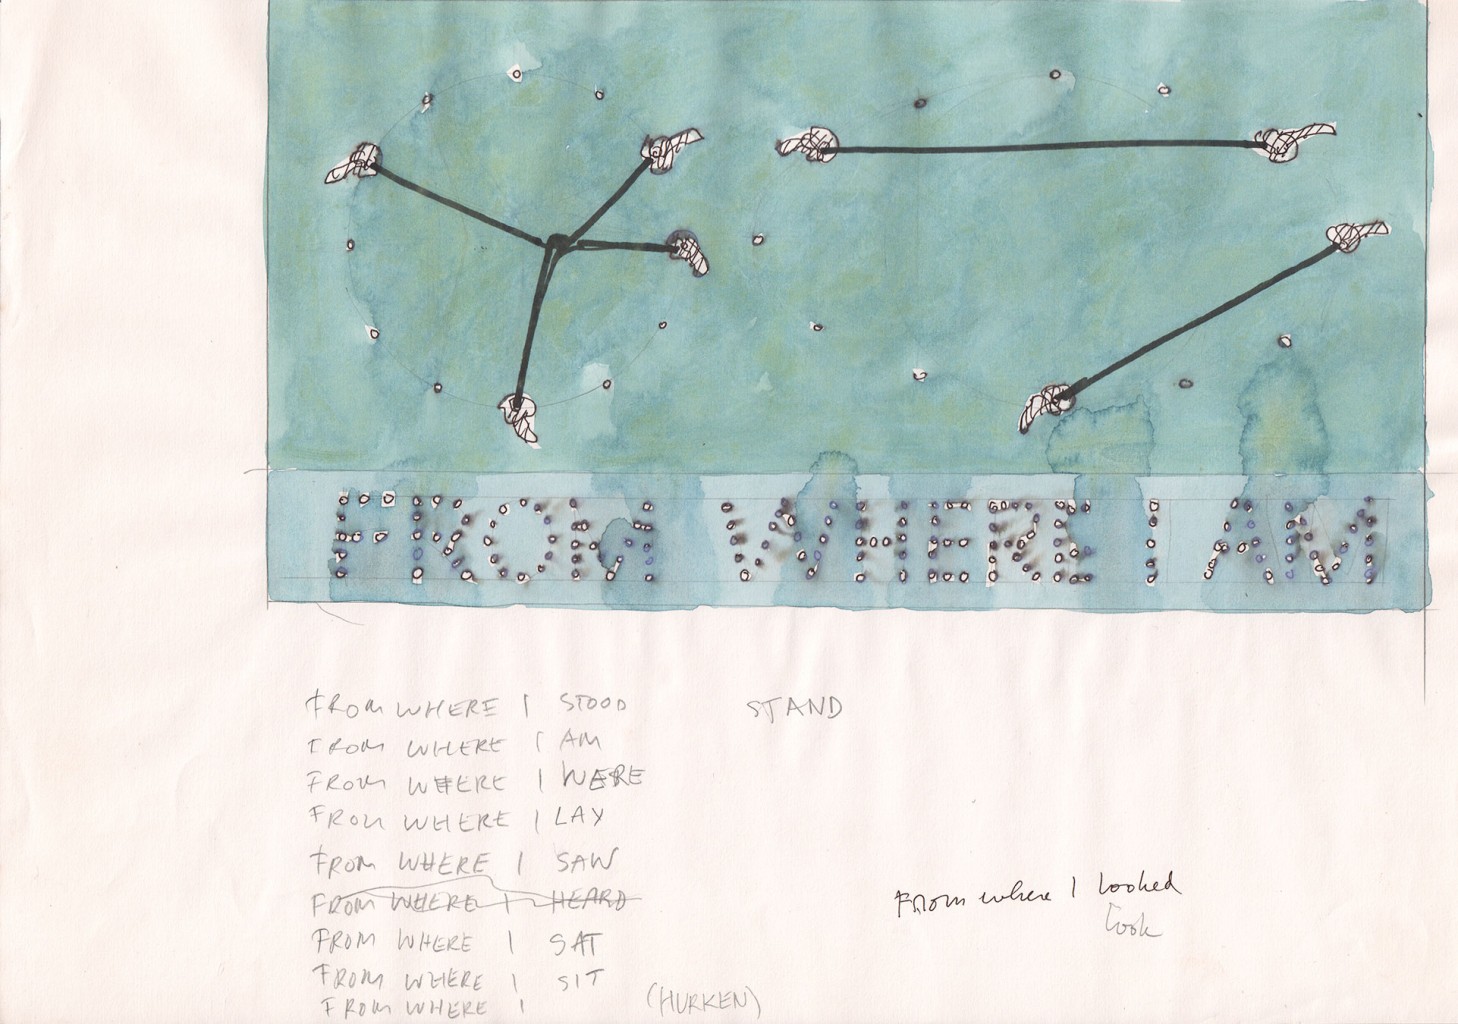 FROM WHERE I AM
FROM WHERE I STOOD STAND
FROM WHERE I AM
FROM WHERE I WERE
FROM WHERE I LAY
FROM WHERE I SAW
FROM WHERE I HEARD
FROM WHERE I SAT
FROM WHERE I SIT
FROM WHERE I (HURKEN)
From where I looked
look